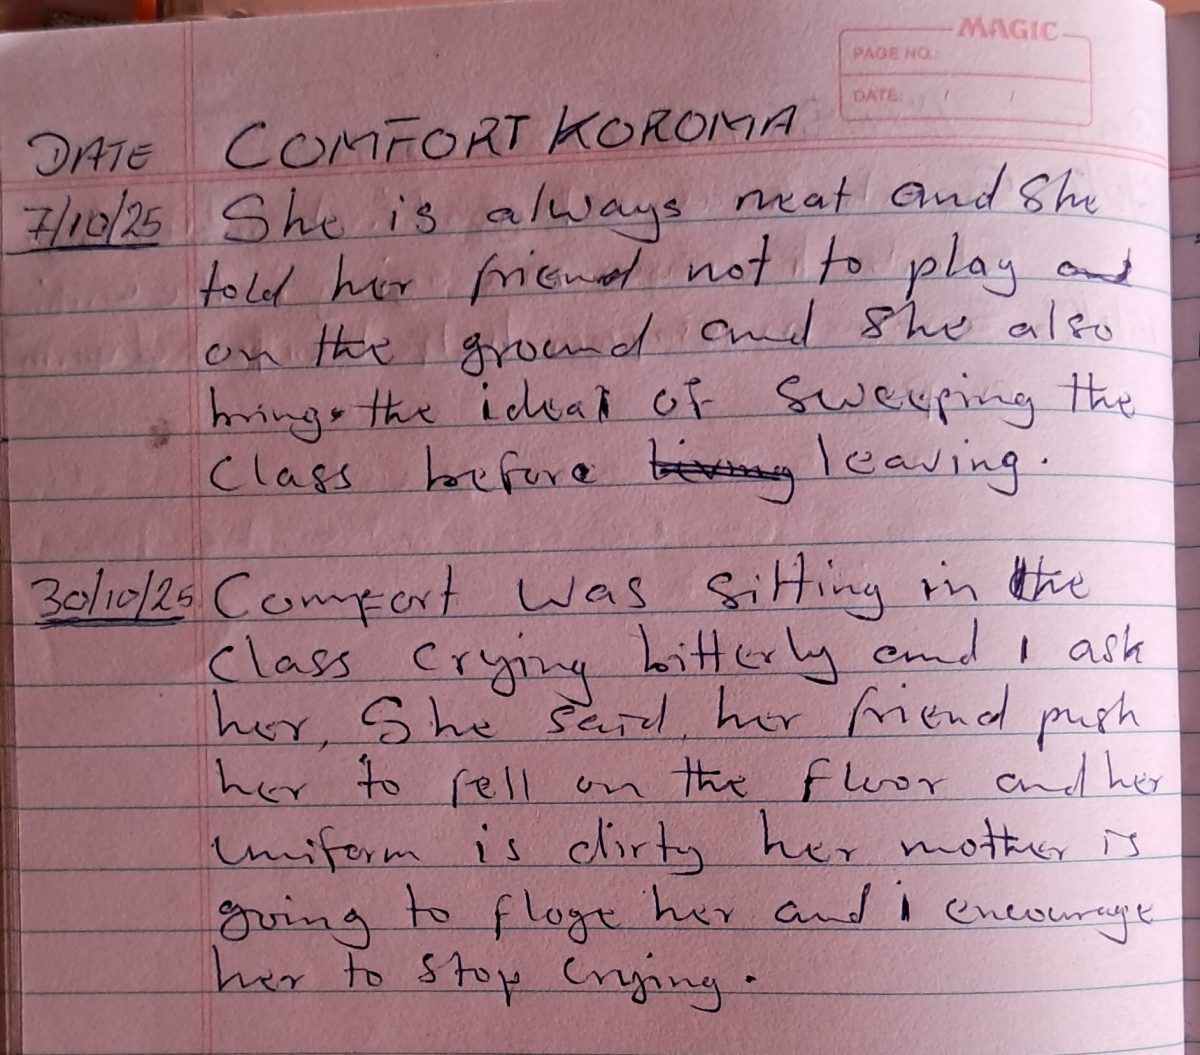 MAGIC
PAGE NO.:
DATE: / /
DATE COMFORT KOROMA
7/10/25 She is always neat and she
told her friend not to play and
on the ground and she also
brings the ideal of sweeping the
Class before living leaving.
30/10/25 Comfort was sitting in the
Class crying bitterly and I ask
her, She said, her friend push
her to fell on the floor and her
uniform is dirty her mother is
going to floge her and i encourage
her to stop crying.